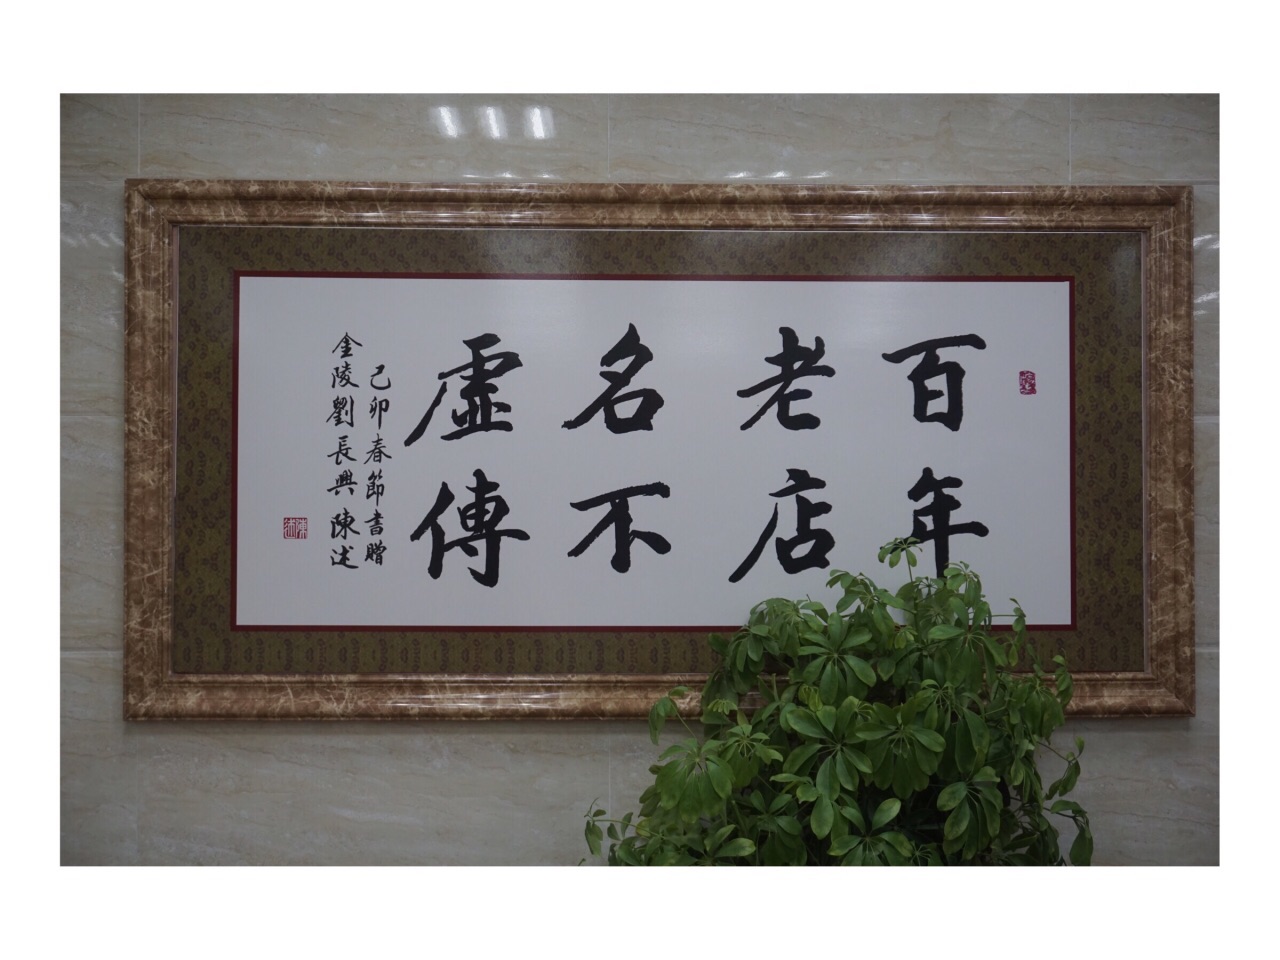 百年
老店
名不
虛傳
己卯春節書贈
金陵劉長興 陳述
陳述